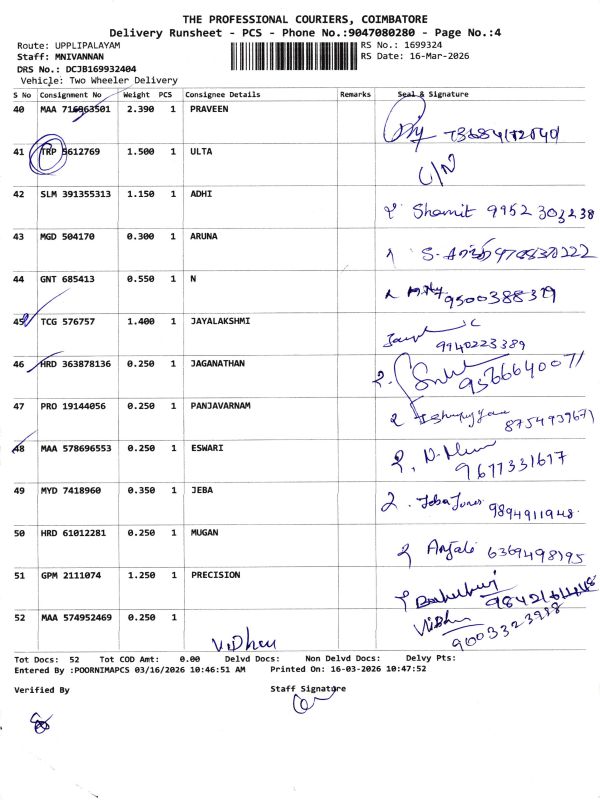 THE PROFESSIONAL COURIERS, COIMBATORE
Delivery Runsheet - PCS - Phone No.:9047080280 - Page No.:4
Route: UPPLIPALAYAM RS No.: 1699324
Staff: MNIVANNAN RS Date: 16-Mar-2026
DRS No.: DCJB169932404
Vehicle: Two Wheeler Delivery
S No Consignment No Weight PCS Consignee Details Remarks Seal & Signature
40 MAA 716963501 2.390 1 PRAVEEN
41 TRP 5612769 1.500 1 ULTA C/N
42 SLM 391355313 1.150 1 ADHI Shamit 9952303238
43 MGD 504170 0.300 1 ARUNA
44 GNT 685413 0.550 1 N 9500388379
45 TCG 576757 1.400 1 JAYALAKSHMI 9940223389
46 HRD 363878136 0.250 1 JAGANATHAN 9566640071
47 PRO 19144056 0.250 1 PANJAVARNAM 8754939671
48 MAA 578696553 0.250 1 ESWARI 9677331617
49 MYD 7418960 0.350 1 JEBA Jeba Jones 9894911948
50 HRD 61012281 0.250 1 MUGAN Anjali 6369498195
51 GPM 2111074 1.250 1 PRECISION
52 MAA 574952469 0.250 1 Vidhu 9003323988
Tot Docs: 52 Tot COD Amt: 0.00 Delvd Docs: Non Delvd Docs: Delvy Pts:
Entered By :POORNIMAPCS 03/16/2026 10:46:51 AM Printed On: 16-03-2026 10:47:52
Verified By Staff Signature